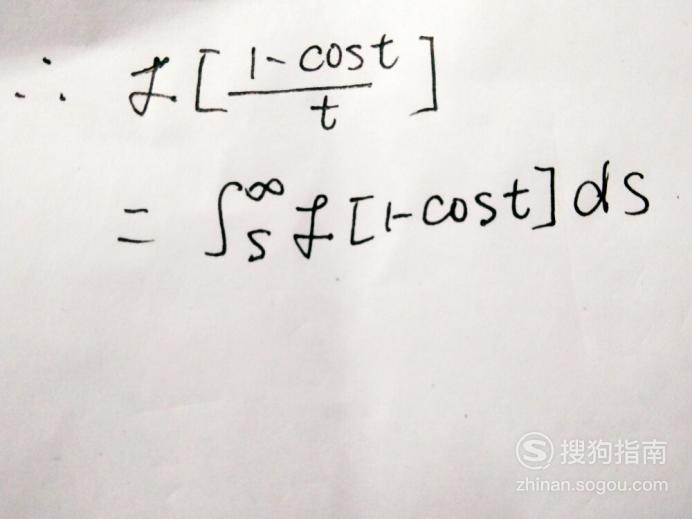 ∴ ℒ[(1-cost)/t]
= ∫_s^∞ ℒ[1-cost]ds
搜狗指南
zhinan.sogou.com